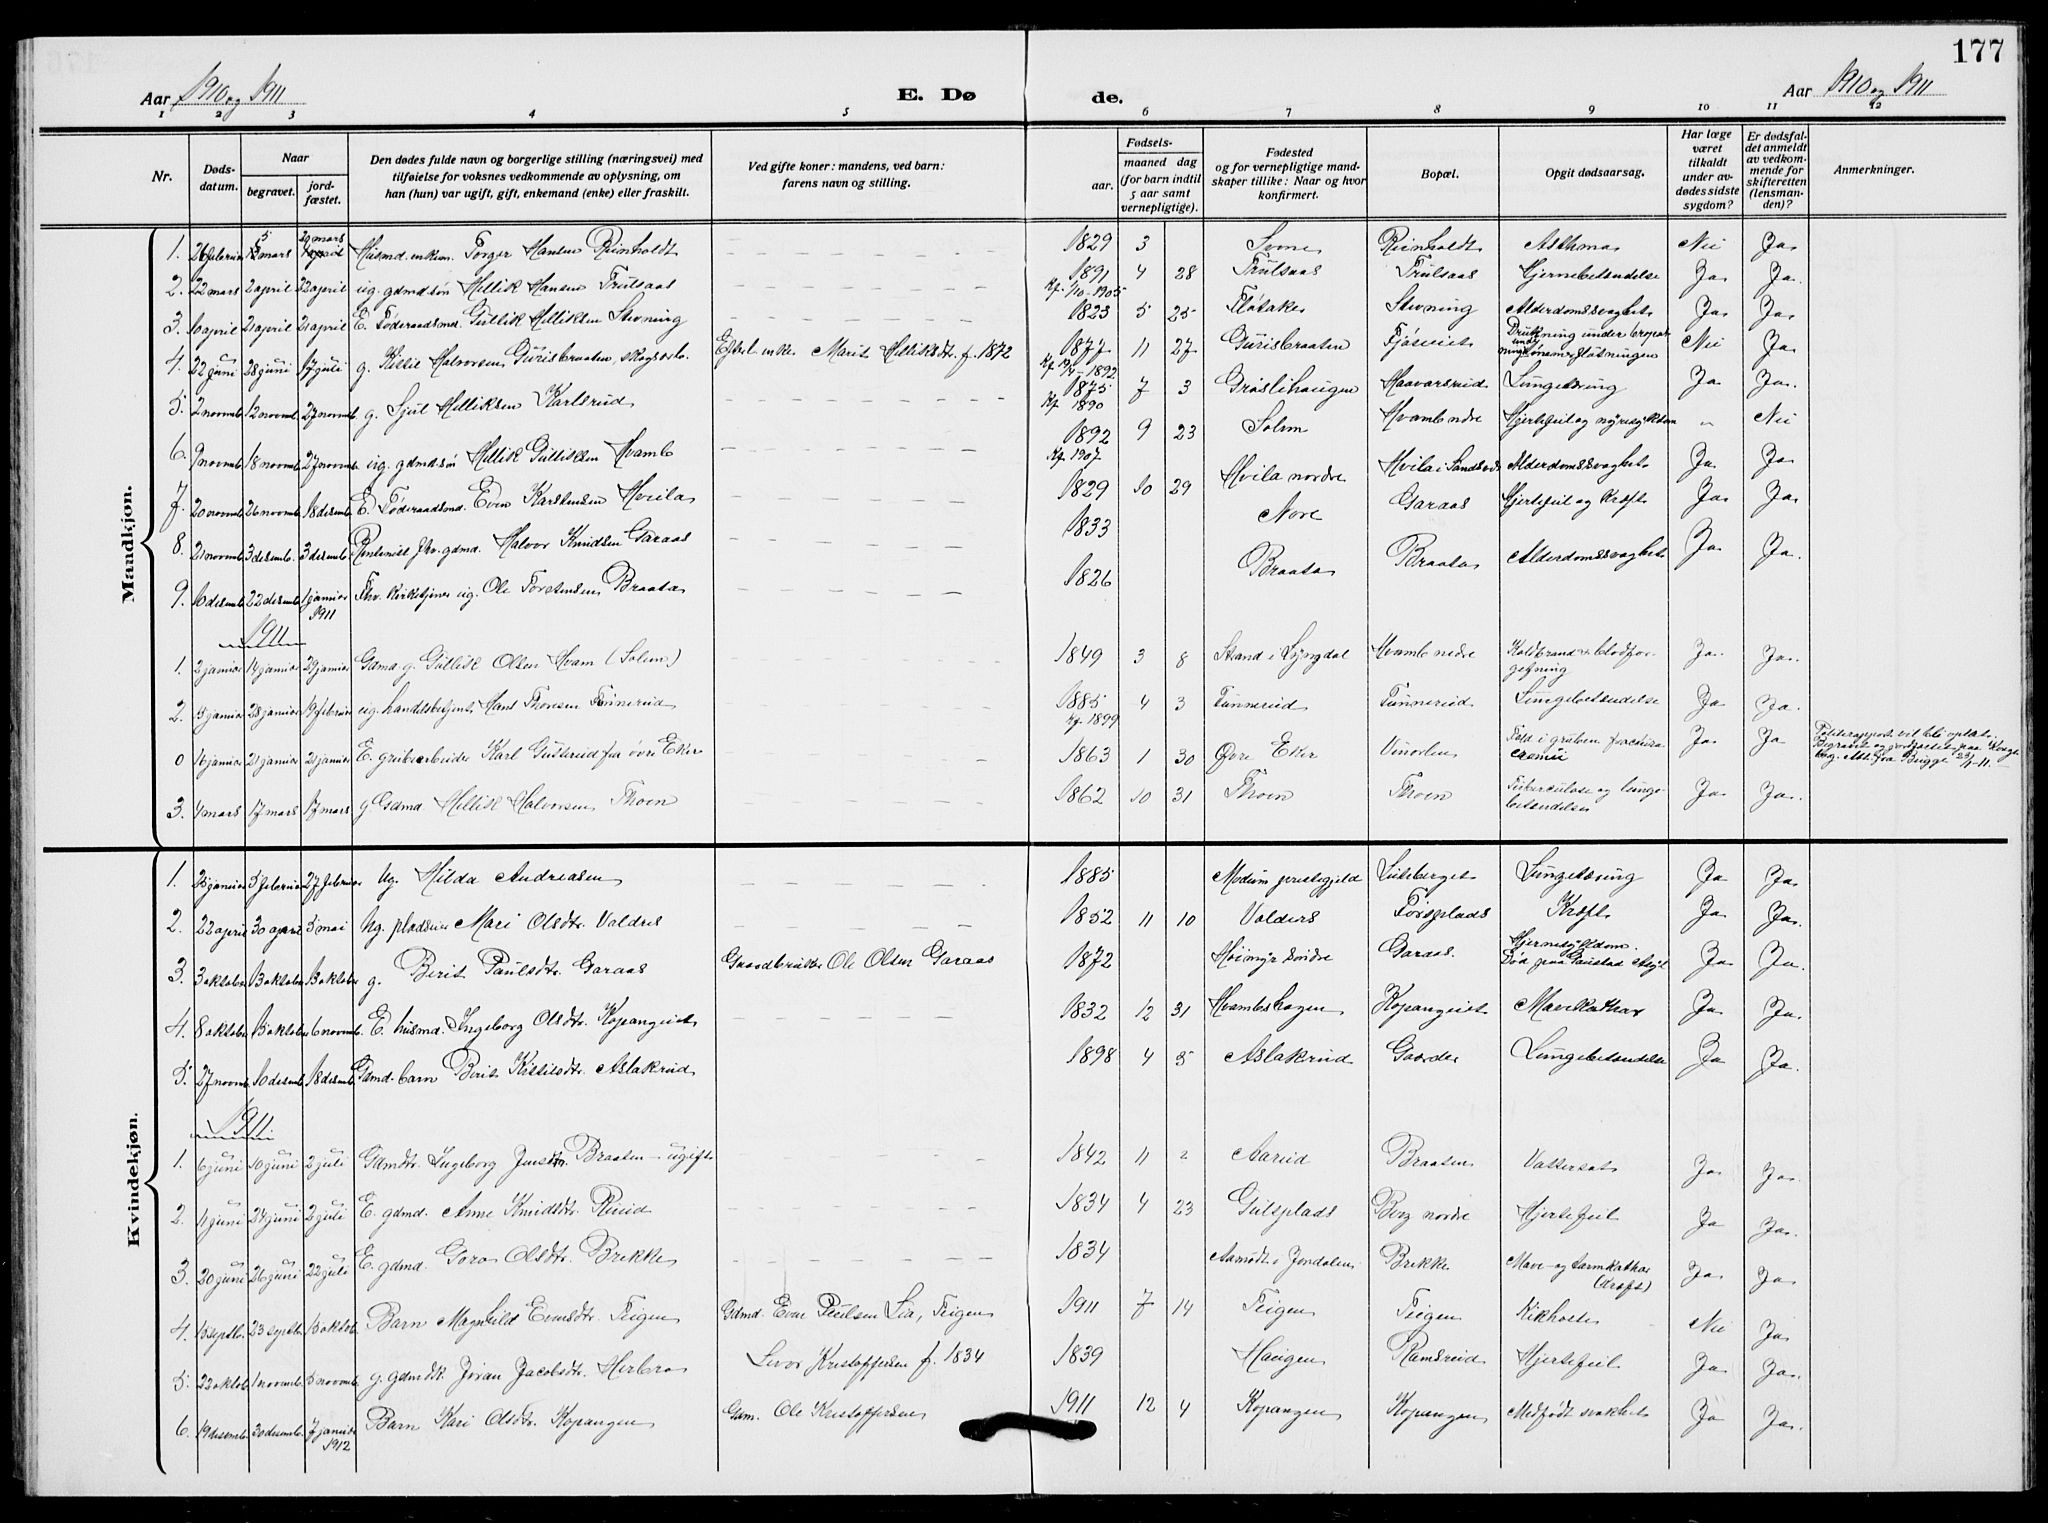 177
Aar 1910 og 1911 E. Dø de. Aar 1910 og 1911
1 2 3 4 5 6 7 8 9 10 11 12
Nr. Døds-datum. Naar begravet. jord-fæstet. Den dødes fulde navn og borgerlige stilling (næringsvei) med tilføielse for voksnes vedkommende av oplysning, om han (hun) var ugift, gift, enkemand (enke) eller fraskilt. Ved gifte koner: mandens, ved barn: farens navn og stilling. Fødsels- aar. maaned dag (for barn indtil 5 aar samt vernepligtige). Fødested og for vernepligtige mandskaper tillike: Naar og hvor konfirmert. Bopæl. Opgit dødsaarsag. Har læge været tilkaldt under avdødes sidste sygdom? Er dødsfaldet anmeldt av vedkommende for skifteretten (lensmanden)? Anmerkninger.
Mandkjøn.
1. 26 februar 5 mars 29 mars Husmd. enkem. Torger Hansen Reinholdt 1829 3 Svene Reinholdt Asthma Nei Ja
2. 22 mars 2 april 22 april ug. gdmdsøn Hellik Hansen Trulsaas 1891 4 28 Trulsaas Trulsaas Hjernebetændelse Ja Ja.
Kf. 1/10-1905
3. 10 april 21 april 21 april E. Føderaadsmd. Gullik Helliksen Stevning 1823 5 25 Fløtaker Stevning Alderdomssvaghet Ja Ja
4. 22 juni 28 juni 17 juli g. Kittil Halvorsen Gurisbraaten, skogsarb. Efterl. enke Marit Helliksdtr. f. 1872 1877 11 27 Gurisbraaten Fjøseiet Drukning under fløtningen Nei Ja
Kf. 1892
5. 2 novemb. 12 novemb. 27 novemb. g. Sjul Helliksen Karlsrud 1875 7 3 Grøslihaugen Haavarsrud Lungetæring Ja Ja.
Kf. 1890
6. 9 novemb. 18 novemb. 27 novemb. ug. gdmdsøn Hellik Gulliksen Hvamb 1892 9 23 Solem Hvamb nedre Hjertefeil og nyresykdom " Nei
Kf. 1907.
7. 20 novemb. 26 novemb. 18 desemb. E. Føderaadsmd. Even Karstensen Hvila 1829 10 29 Hvila nordre Hvila i Sandsvær Alderdomssvaghet Ja Ja
8. 21 novemb. 3 desemb. 3 desemb. Rentenist fhv. gdmd. Halvor Knudsen Garaas 1833 Nore Garaas Hjertefeil og Kræft Ja Ja
9. 16 desemb. 22 desemb. 1 januar 1911 Fhv. kirketjener ug. Ole Torstensen Braata 1826 Braata Braata Alderdomssvaghet Ja Ja.
1911
1. 2 januar 14 januar 29 januar Gdmd g. Gullik Olsen Hvam (Solem) 1849 3 8 Strand i Lyngdal Hvamb nedre Koldbrand & blodforgiftning Ja. Ja.
2. 15 januar 28 januar 19 februar ug. handelsbetjent Hans Thoresen Tunnerud 1885 4 3 Tunnerud Tunnerud Lungebetændelse Ja Ja.
Kf. 1899
0 16 januar 21 januar 21 januar E. grubearbeider Karl Gutterud fra øvre Eker 1863 1 30 Øvre Eker Vinoren Fald i gruben fractura cranii Ja Ja Politirapport vil bli optat. Begravet og jordfæstet paa Kongsberg. Att. fra Bugge 23/1-11.
3. 4 mars 17 mars 17 mars g. Gdmd. Hellik Halvorsen Thoen 1862 10 31 Thoen Thoen Tuberculose og lungebetændelse Ja Ja.
Kvindekjøn.
1. 25 januar 5 februar 27 februar Ug. Hilda Andreasen 1885 Modum prestegjeld Luksberget Lungetæring Ja Ja
2. 22 april 30 april 5 mai Ug. Mari Olsdtr. Valdres 1852 11 10 Valders Torsplads Kræft Ja Ja.
3. 3 oktober 13 oktober 13 oktober g. Berit Paulsdtr. Garaas Gaardbruker Ole Olsen Garaas 1872 Høimyr søndre Garaas. Hjernesygdom. Død paa Gaustad Asyl Ja Ja.
4. 8 oktober 13 oktober 6 novemb. E. husmd. Ingeborg Olsdtr. Kopangeiet 1832 12 31 Hvambshagen Kopangeiet Mavekathar Ja Ja.
5. 27 novemb. 10 desemb. 18 desemb. Gdmd. barn Berit Kittilsdtr. Aslakrud 1898 4 5 Aslakrud Gaarder Lungebetændelse Ja Ja.
1911
1. 6 juni 10 juni 2 juli Gdmdtr. Ingeborg Jensdtr. Braaten - ugift 1842 11 2 Aarud Braaten Vattersot Ja Ja.
2. 11 juni 24 juni 2 juli E. gdmd. Anne Knudsdtr. Ruud 1834 4 23 Gulsplads Berg nordre Hjertefeil Ja Ja.
3. 20 juni 26 juni 22 juli E. gdmd. Goro Olsdtr. Brekke 1834 Aamodt i Jondalen Brekke Mave- og tarmkathar (Kræft) Ja Ja
4. 15 septb. 23 septb. 15 oktob. Barn Magnhild Evensdtr. Teigen Gdmd. Even Paulsen Lia, Teigen 1911 7 14 Teigen Teigen Kikhoste Nei Ja
5. 22 oktob. 1 novemb. 5 novemb. g. gdmdk. Jøran Jacobsdtr. Herbro Levor Kristoffersen f. 1834 1839 Haugen Ramsrud Hjertefeil Ja Ja.
6. 19 desemb. 30 desemb. 7 januar 1912 Barn Kari Olsdtr. Kopangen Gdm. Ole Kristoffersen 1911 12 4 Kopangen Kopangen Medfødt svakhet Ja Ja.